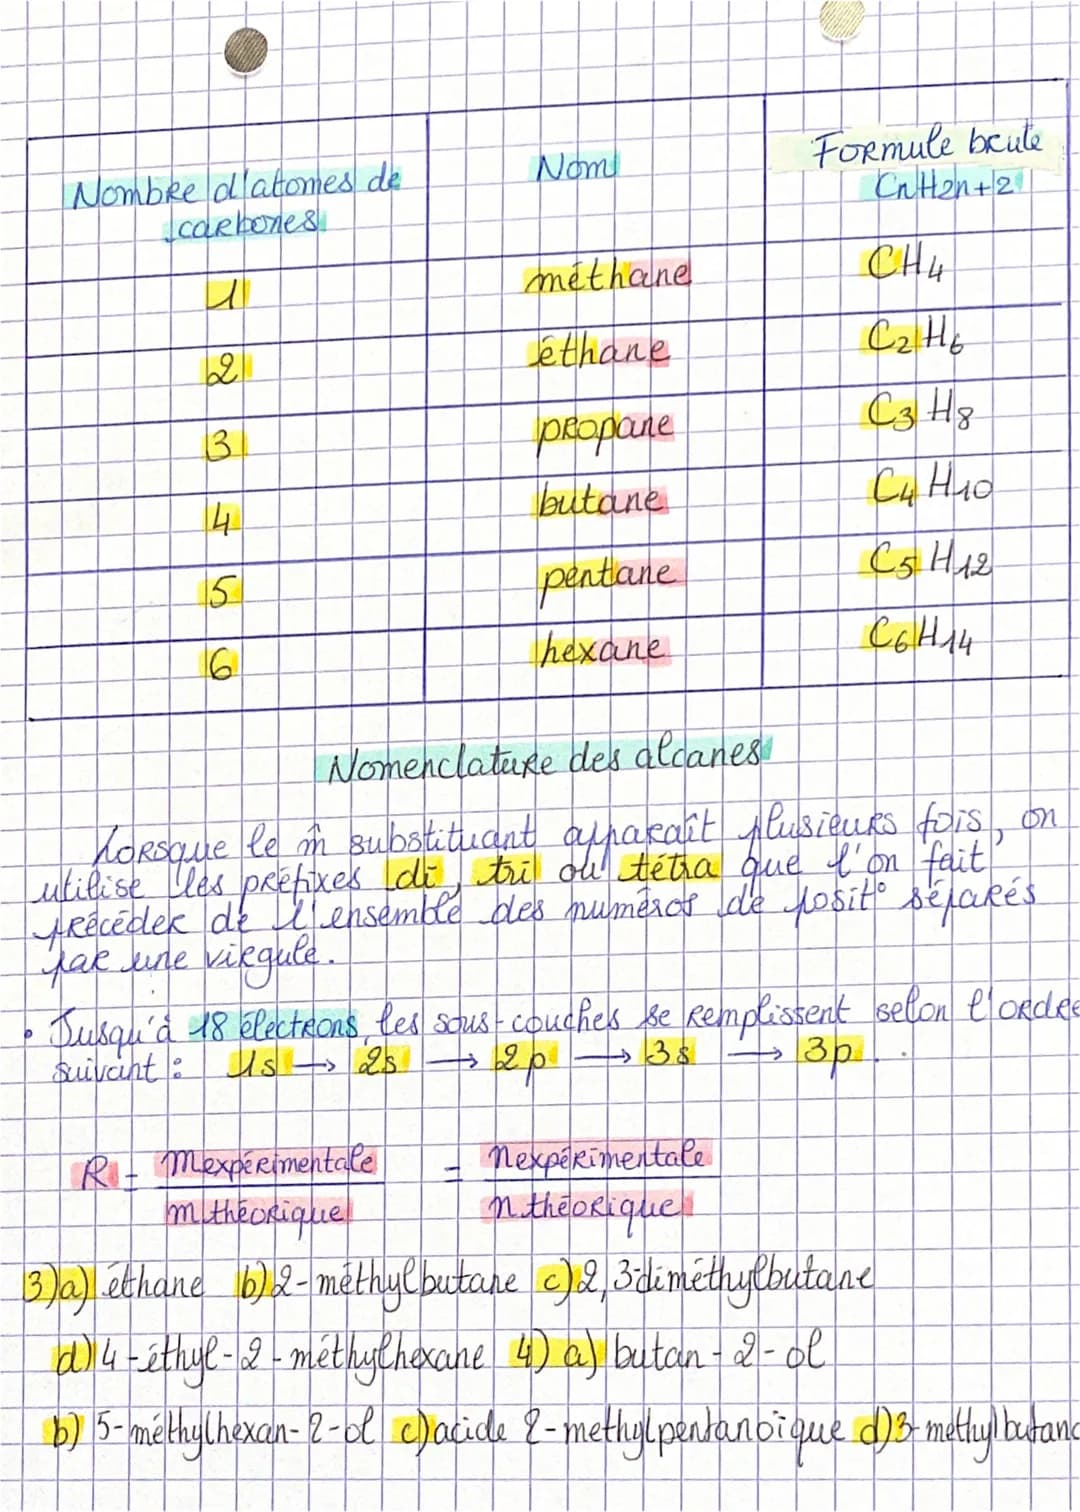 Nombre d'atomes de carbones
Nom
Formule brute CnH2n+2
1 méthane CH4
2 éthane C2H6
3 propane C3H8
4 butane C4H10
5 pentane C5H12
6 hexane C6H14
Nomenclature des alcanes
Lorsque le m̂ substituant apparaît plusieurs fois, on
utilise les préfixes di, tri ou tétra que l'on fait
précéder de l'ensemble des numéros de posit° séparés
par une virgule.
• Jusqu'à 18 électrons, les sous-couches se remplissent selon l'ordre
suivant : 1s → 2s → 2p → 3s → 3p...
R = mexpérimentale / m théorique = nexpérimentale / n théorique
3)a) éthane b)2-méthylbutane c)2,3-diméthylbutane
d)4-éthyl-2-méthylhexane 4) a) butan-2-ol
b) 5-méthylhexan-2-ol c)acide 2-methylpentanoïque d)3-methylbutan